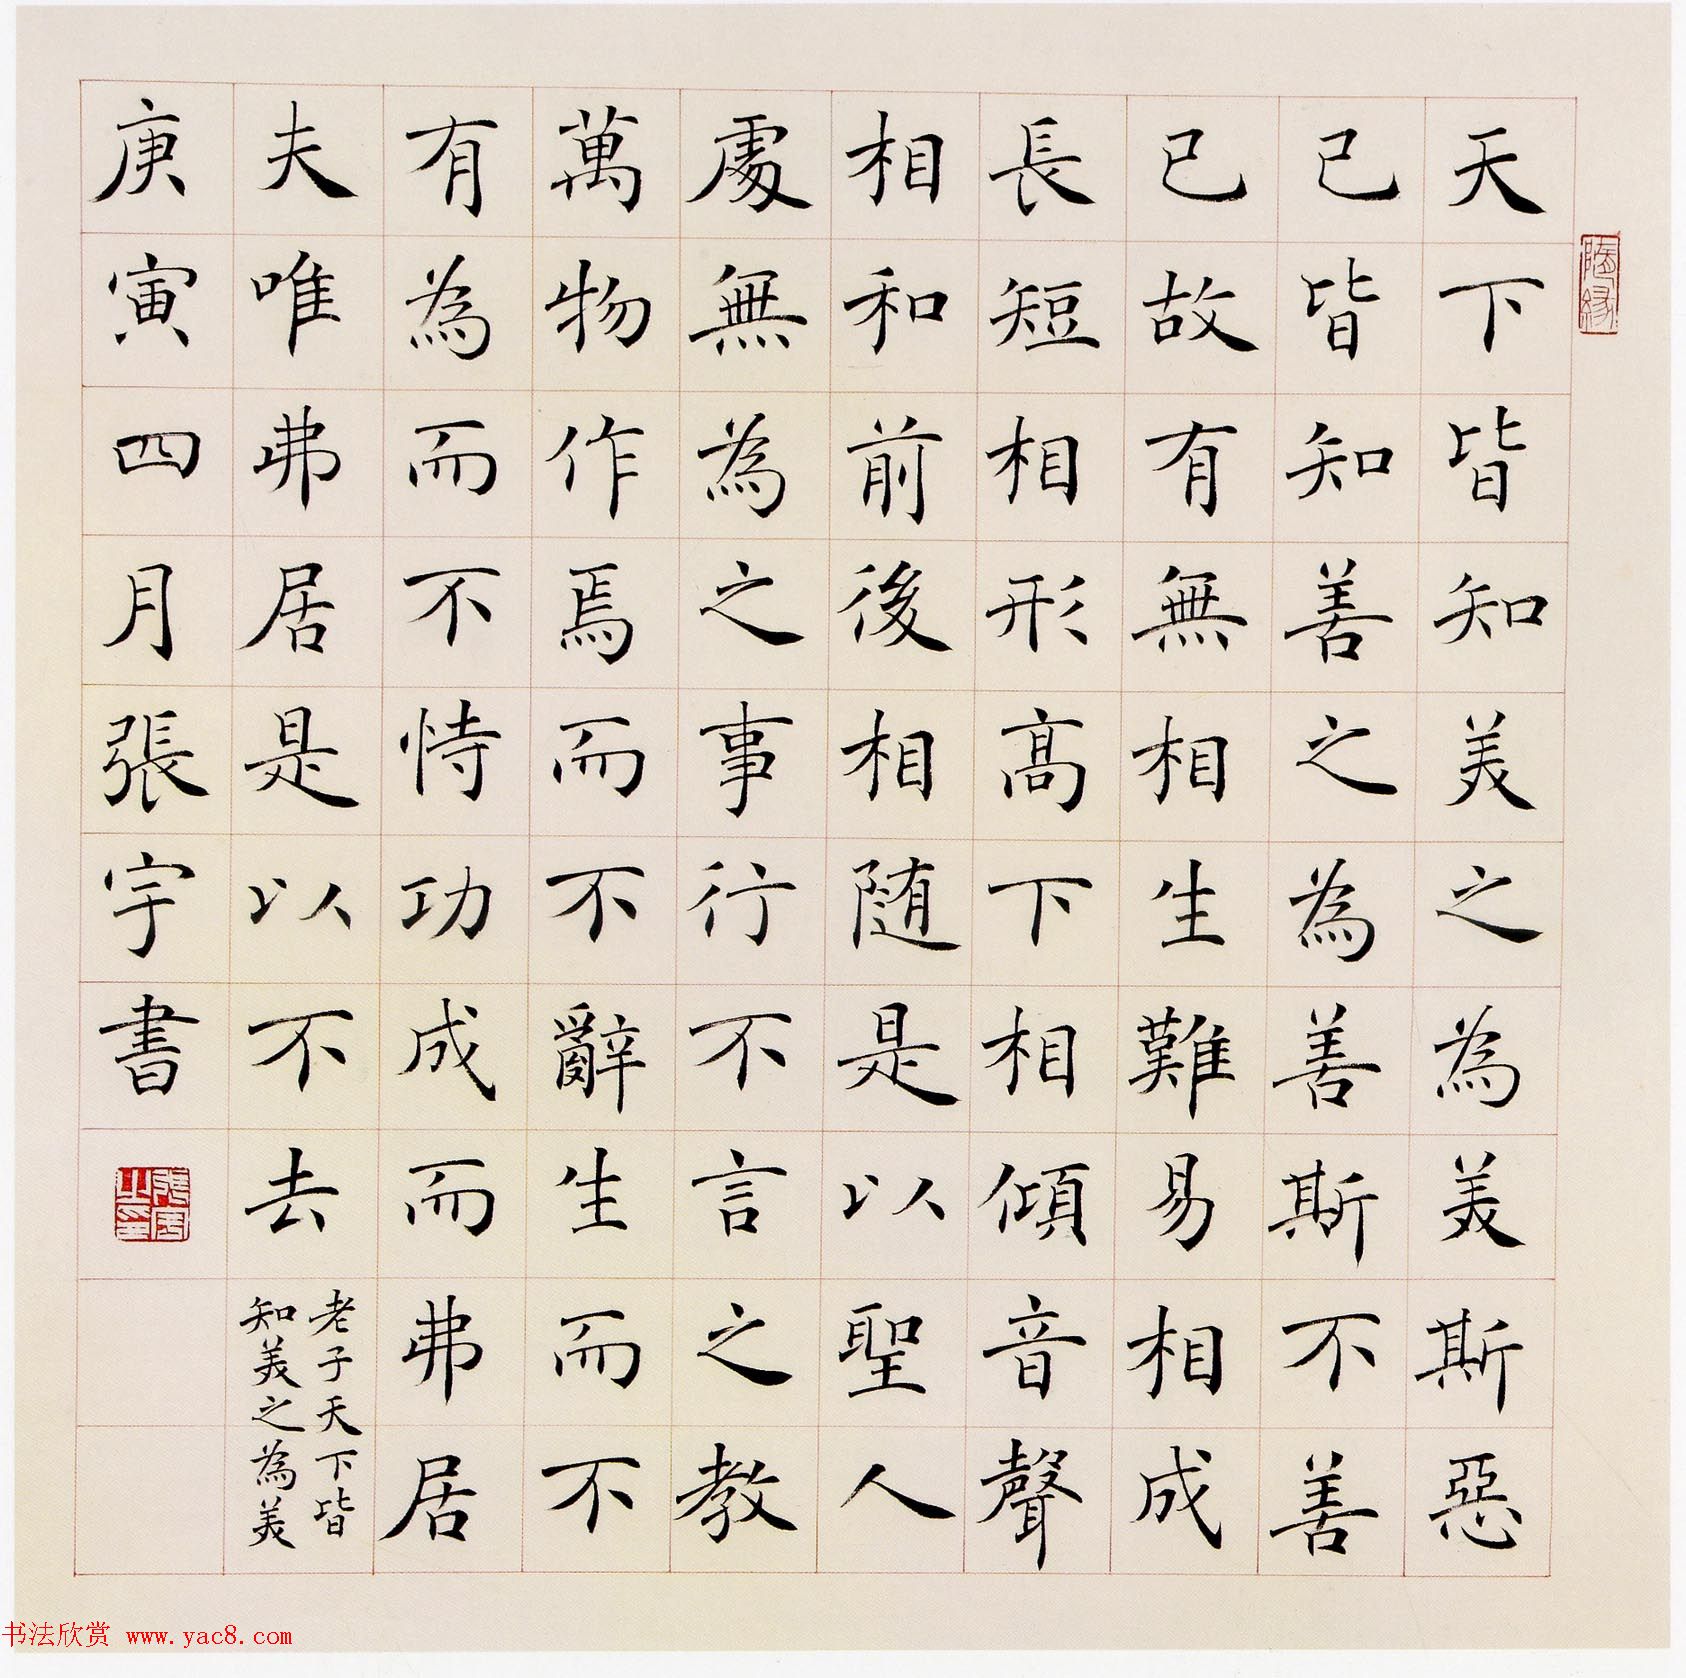 天下皆知美之為美斯惡
已皆知善之為善斯不善
已故有無相生難易相成
長短相形高下相傾音聲
相和前後相随是以聖人
處無為之事行不言之教
萬物作焉而不辭生而不
有為而不恃功成而弗居
夫唯弗居是以不去
老子天下皆
知美之為美
庚寅四月張宇書
張宇之印
书法欣赏 www.yac8.com